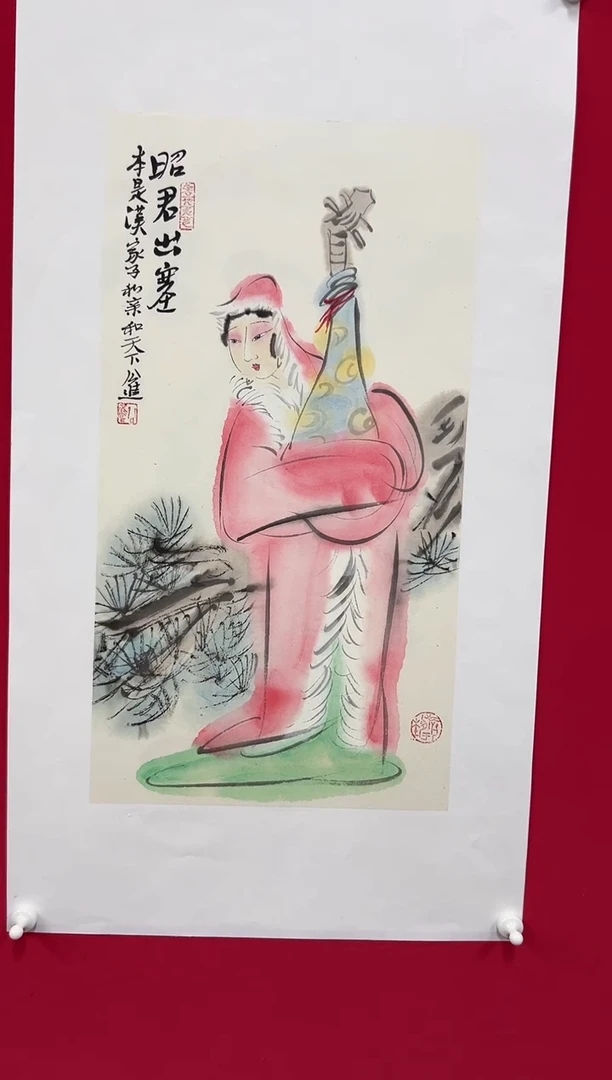 昭君出塞
本是漢家子和亲和天下